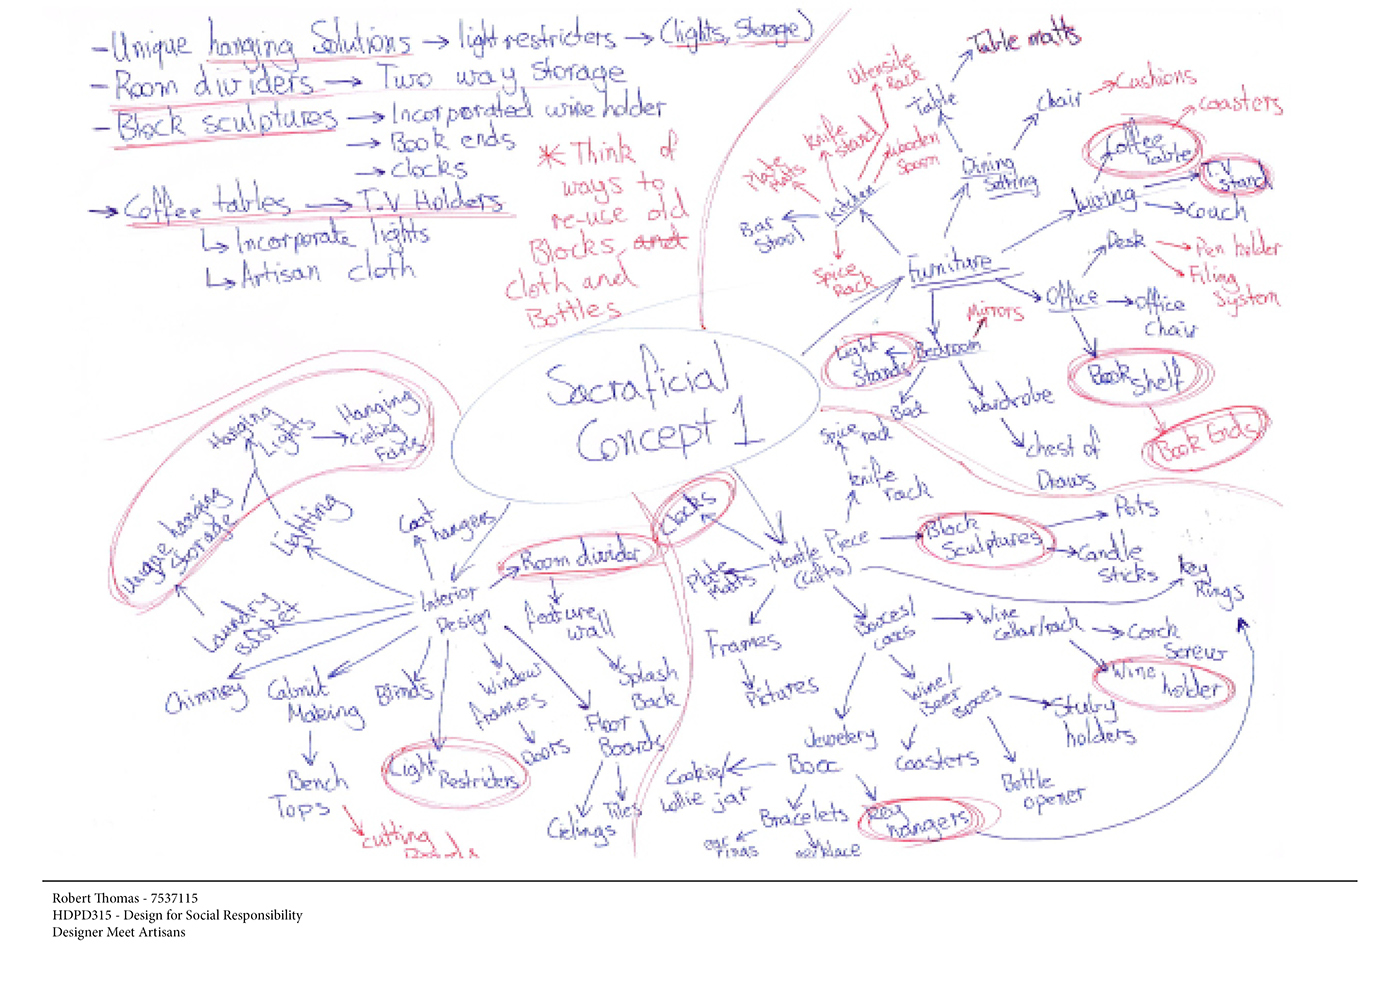 - Unique hanging Solutions → light restricters → (lights, Storage)
- Room dividers → Two way storage
- Block sculptures → Incorporated wine holder
→ Book ends
→ clocks
→ Coffee tables → T.V Holders
↳ Incorporate lights
↳ Artisan cloth
* Think of
ways to
re-use old
Blocks, and
cloth and
Bottles
Sacraficial
Concept 1
Furniture
Kitchen
Utensile
Rack
Knife
Stand
Wooden
Spoon
Plate
Matts
Bar
Stool
Spice
Rack
Dining
Setting
Table
Table matts
Chair
Cushions
Living
Coffee
Table
Coasters
T.V
Stand
Couch
Office
Desk
Pen holder
Filing
System
Office
Chair
Book
Shelf
Book Ends
Bedroom
Mirrors
Light
Stands
Bed
Wardrobe
Chest of
Draws
Mantle Piece
(Gifts)
Spice
rack
knife
rack
Clocks
Plate
Matts
Frames
Pictures
Block
Sculptures
Pots
Candle
Sticks
Key
Rings
Boxes/
Wine
Cellar/rack
Corck
Screws
Wine
holder
Wine/
Beer
Boxes
Stuby
holders
Coasters
Bottle
opener
Jewelery
Box
Cookie/
lollie jar
Bracelets
ear
rings
necklace
Key
hangers
Interior
Design
Coat
hangers
Room divider
feature
wall
Splash
Back
Window
frames
Doors
Floor
Boards
Cielings
Tiles
Light
Restriders
Blinds
Cabnit
Making
Bench
Tops
cutting
Boards
Chimney
Laundry
Basket
Unique hanging
Storage
Lighting
Hanging
Lights
Hanging
Cieling
Fans
Robert Thomas - 7537115
HDPD315 - Design for Social Responsibility
Designer Meet Artisans